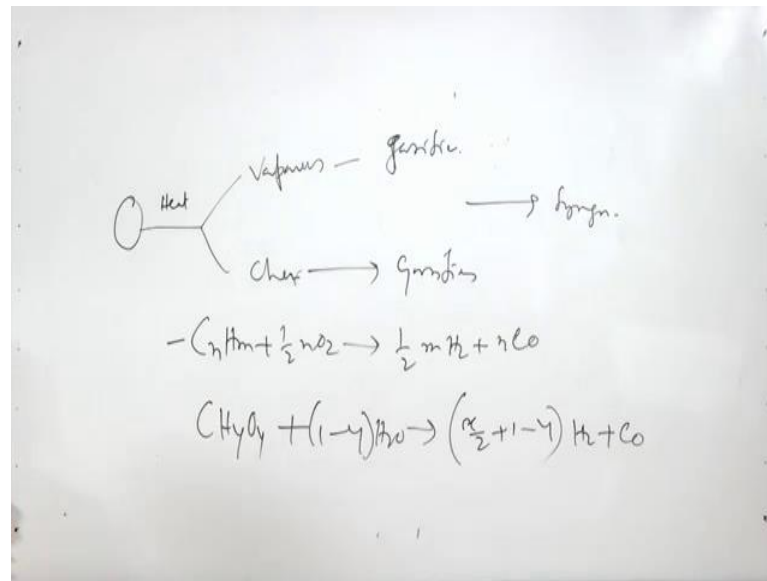 Heat
Vapours — gasific.
→ Syngn.
Char → Gasifies
- CnHm + 1/2 nO2 → 1/2 m H2 + nCo
CHyOy + (1-y)H2O → (x/2 + 1 - y) H2 + Co